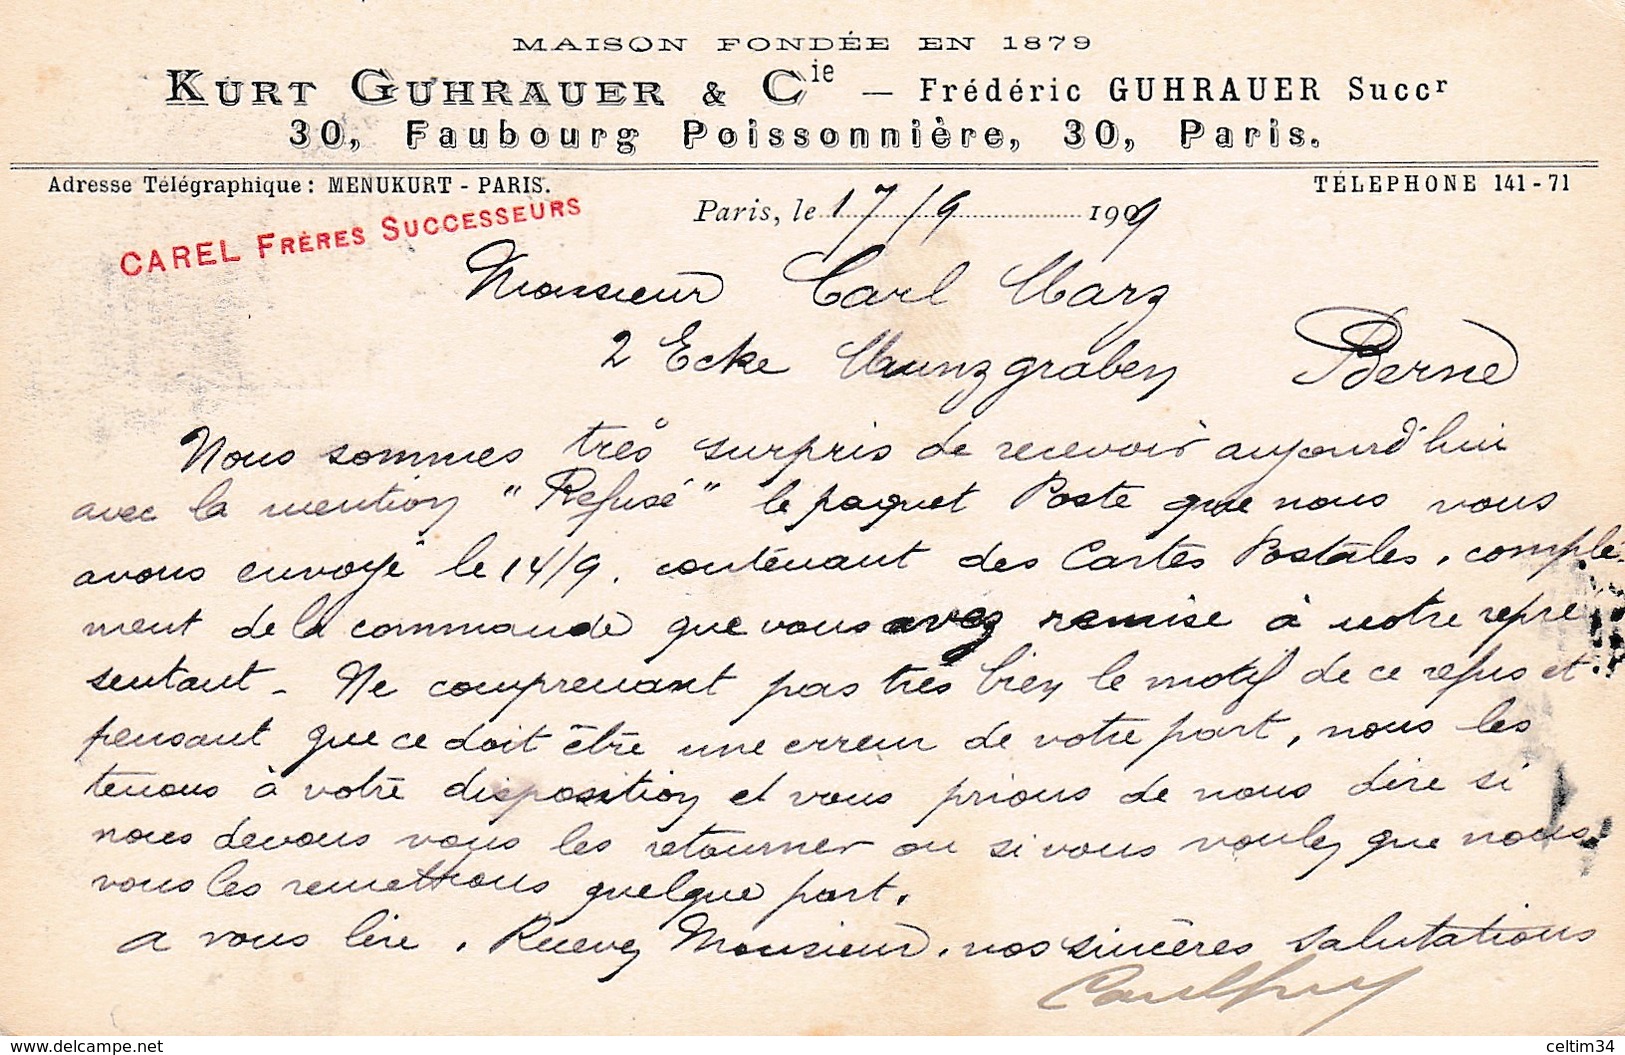 MAISON FONDÉE EN 1879
KURT GUHRAUER & Cie — Frédéric GUHRAUER Succr
30, Faubourg Poissonnière, 30, Paris.
Adresse Télégraphique: MENUKURT - PARIS.
TÉLEPHONE 141-71
CAREL FRÈRES SUCCESSEURS
Paris, le 17/9 1909
Monsieur Carl Marz
2 Ecke Munzgraben Berne
Nous sommes très surpris de recevoir aujourd'hui
avec la mention "Refusé" le paquet Poste que nous vous
avons envoyé le 14/9. contenant des Cartes Postales, complé-
ment de la commande que vous avez remise à notre repré
sentant - Ne comprenant pas très bien le motif de ce refus et
pensant que ce doit être une erreur de votre part, nous les
tenons à votre disposition et vous prions de nous dire si
nous devons vous les retourner ou si vous voulez que nous
vous les remettions quelque part.
A vous lire. Recevez Monsieur, nos sincères salutations
delcampe.net
celtim34